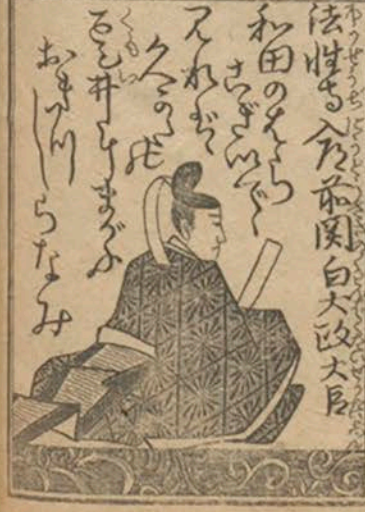 法性寺入道前関白大政大臣
和田のはら
こぎいでゝ
みれば
久かたの
雲井にまがふ
おきつしらなみ